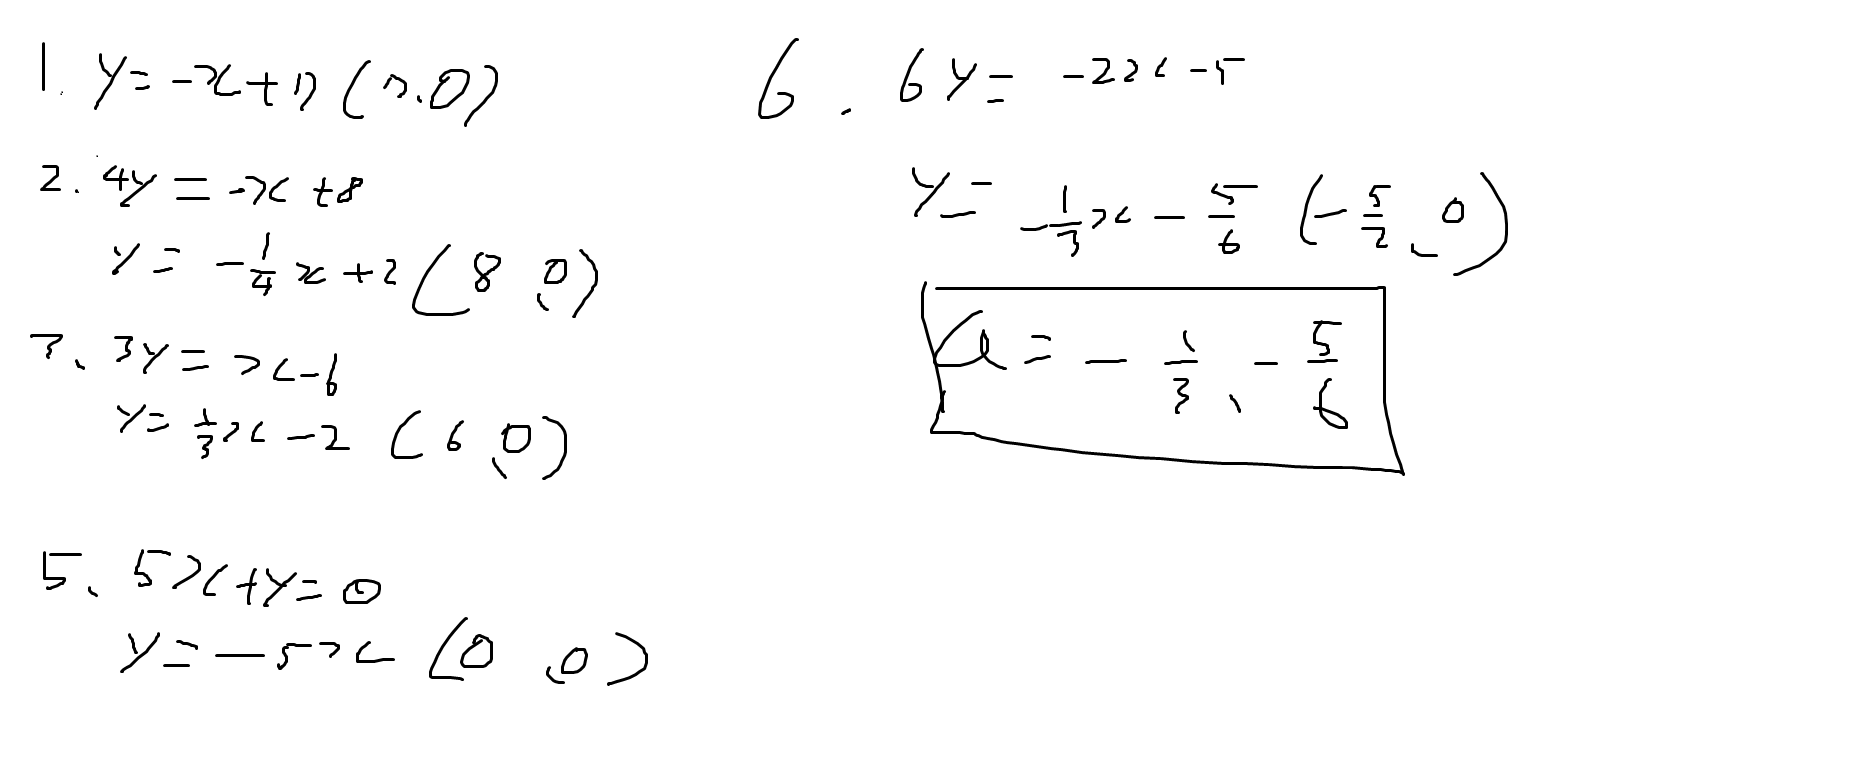 1. y = -x + 7 (7, 0)
2. 4y = -x + 8
y = -1/4 x + 2 (8, 0)
3. 3y = x - 6
y = 1/3 x - 2 (6, 0)
5. 5x + y = 0
y = -5x (0, 0)
6. 6y = -2x - 5
y = -1/3 x - 5/6 (-5/2, 0)
a = -1/3, -5/6